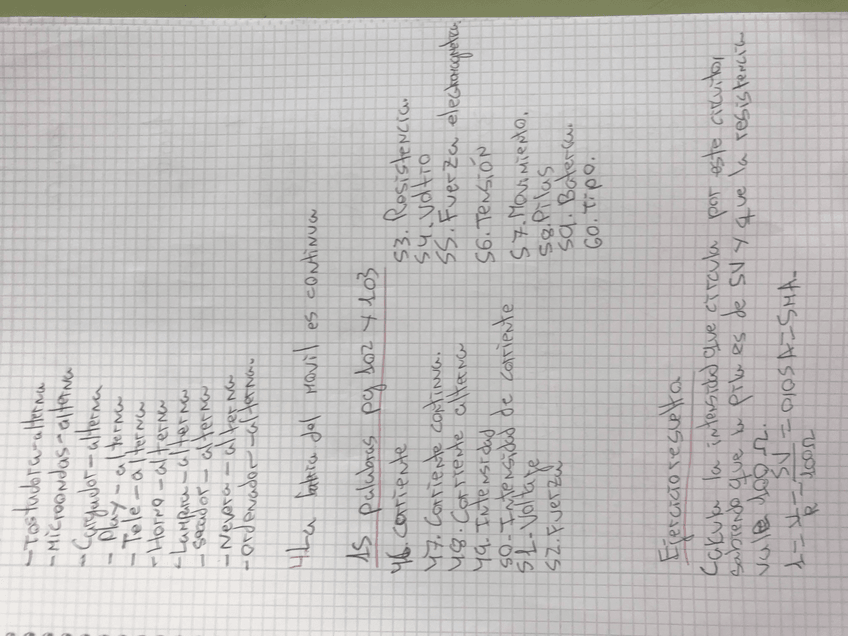 -Tostadora-alterna
-Microondas-alterna
-Cargador-alterna
-Play-alterna
-Tele-alterna
-Horno-alterna
-Lampara-alterna
-Secador-alterna
-Nevera-alterna
-Ordenador-alterna.
4La batria del Movil es continua
15 palabras pg 102 y 103
46. Corriente
47. Corriente continua.
48. Corriente alterna
49. Intensidad
50- Intensidad de corriente
51. Voltage
52. Fuerza
53. Resistencia.
54. Voltio
55. Fuerza electromagnetica.
56. TENSIÓN
57. Movimiento.
58. Pilas
59. Bateria.
60. Tipo.
Ejercicio resuelto
Calcula la intensidad que circula por este circuito,
sabiendo que la pila es de 5V y que la resistencia
vale 100 Ω.
I = V/R = 5V/100Ω = 0'05A = 5HA